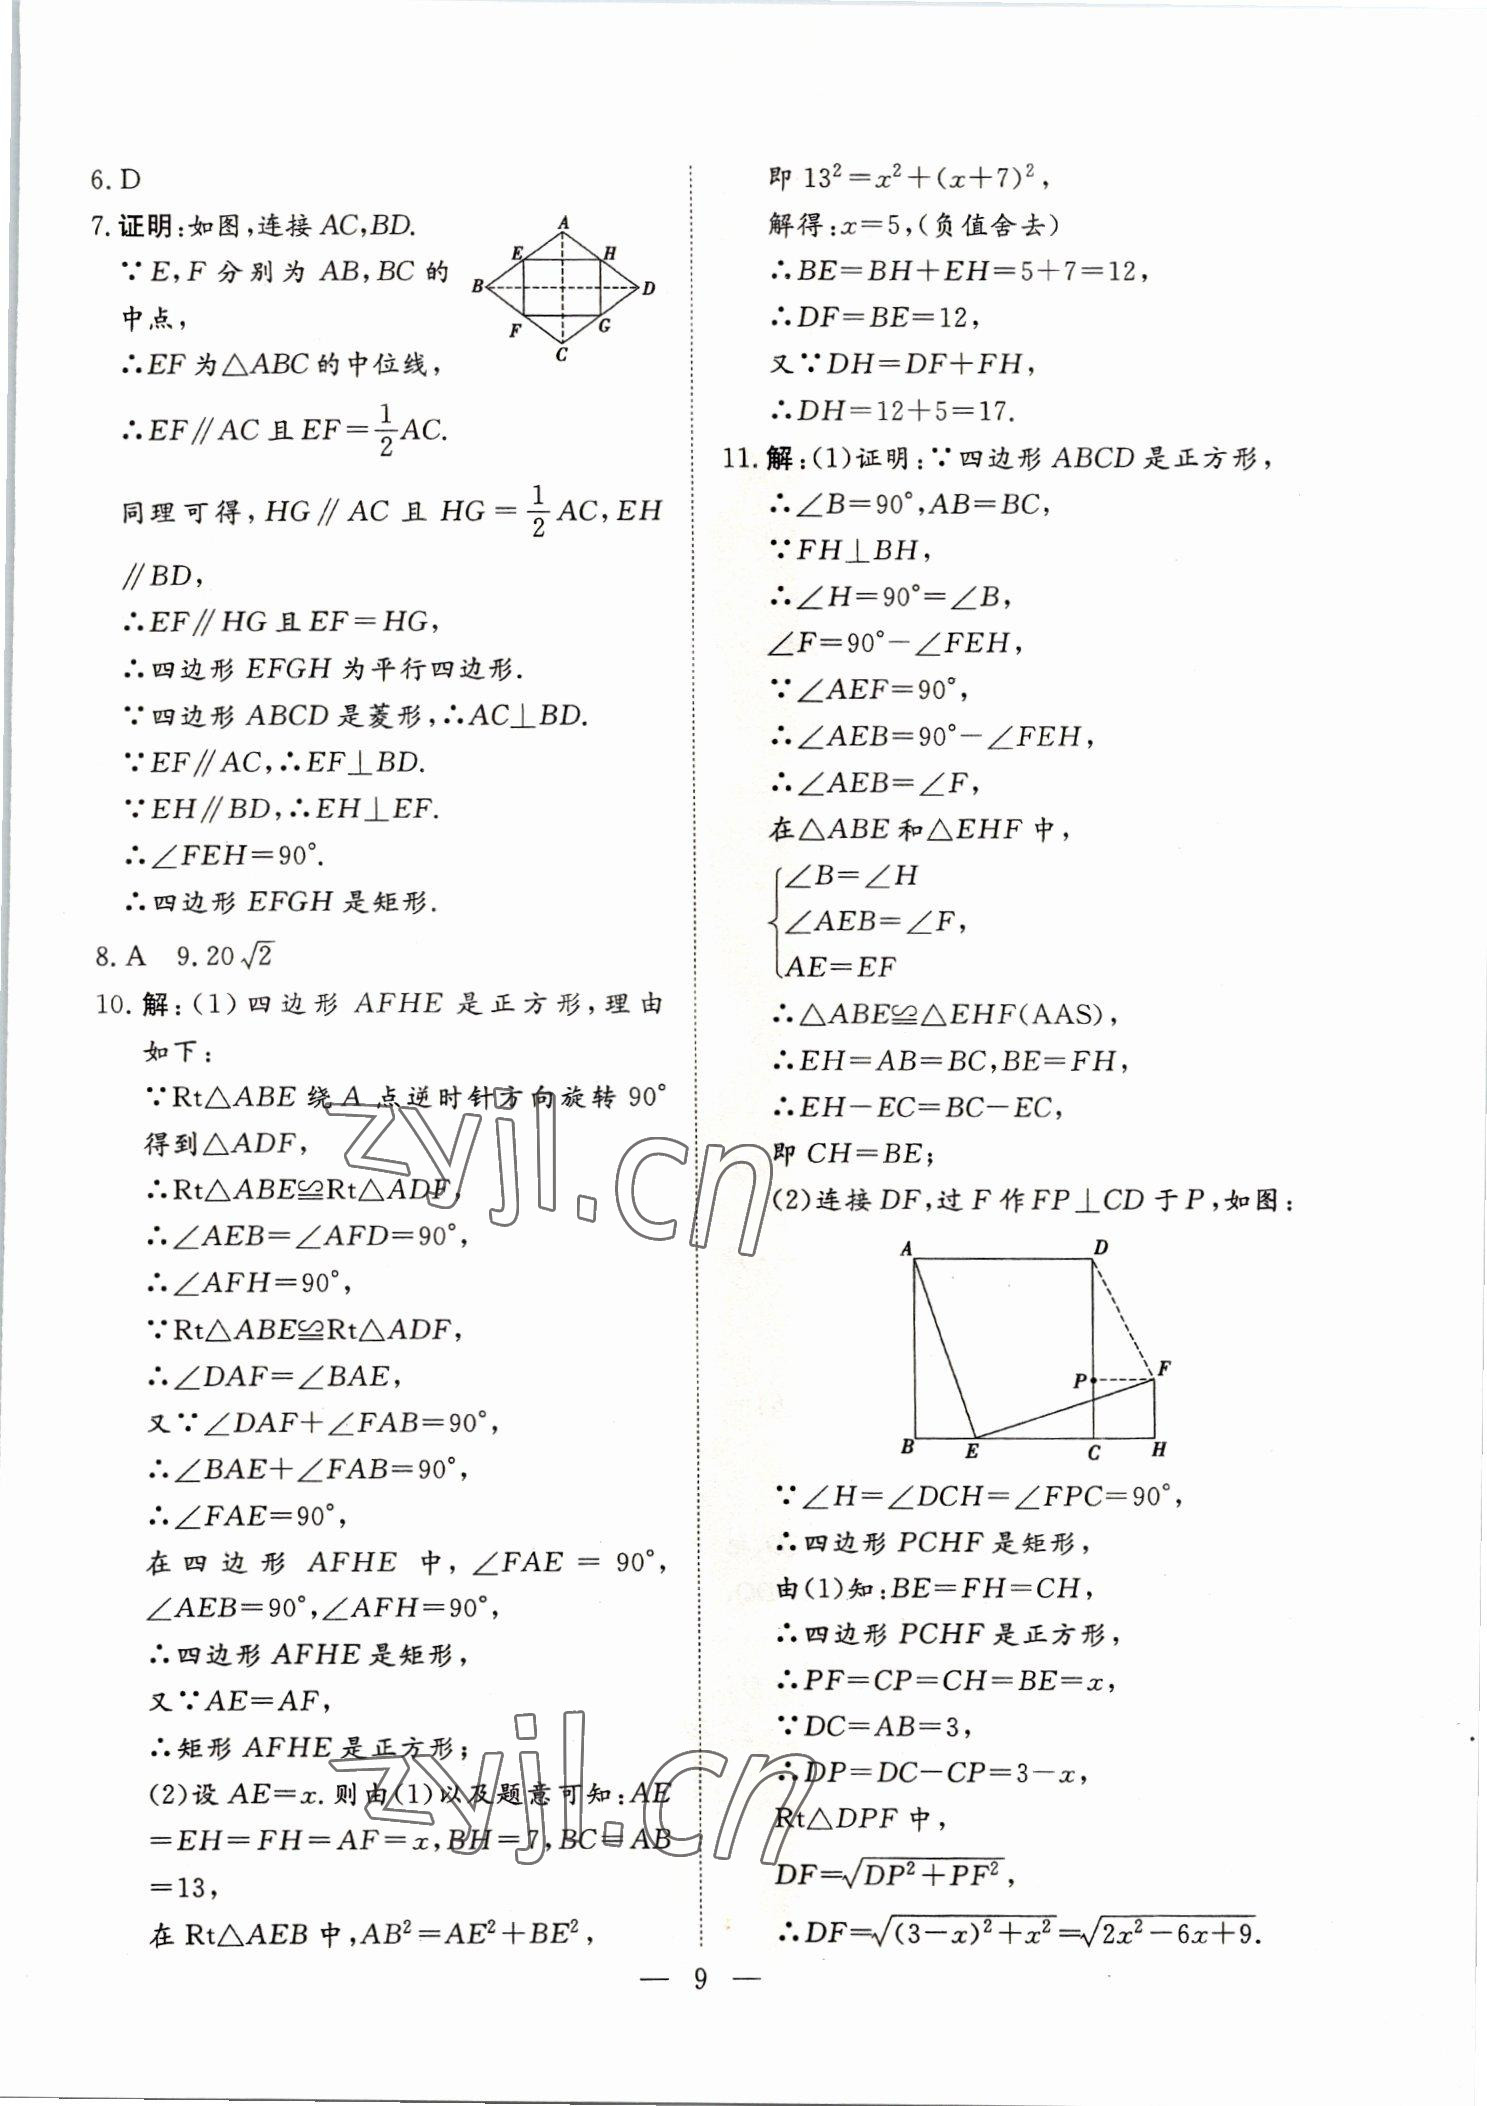 6. D
7. 证明:如图,连接 AC,BD.
∵E,F 分别为 AB,BC 的
中点,
∴EF 为△ABC 的中位线,
∴EF∥AC 且 EF=1/2AC.
同理可得,HG∥AC 且 HG=1/2AC,EH
∥BD,
∴EF∥HG 且 EF=HG,
∴四边形 EFGH 为平行四边形.
∵四边形 ABCD 是菱形,∴AC⊥BD.
∵EF∥AC,∴EF⊥BD.
∵EH∥BD,∴EH⊥EF.
∴∠FEH=90°.
∴四边形 EFGH 是矩形.
A
E H
B D
F G
C
8. A 9. 20√2
10. 解:(1)四边形 AFHE 是正方形,理由
如下:
∵Rt△ABE 绕 A 点逆时针方向旋转 90°
得到△ADF,
∴Rt△ABE≌Rt△ADF,
∴∠AEB=∠AFD=90°,
∴∠AFH=90°,
∵Rt△ABE≌Rt△ADF,
∴∠DAF=∠BAE,
又∵∠DAF+∠FAB=90°,
∴∠BAE+∠FAB=90°,
∴∠FAE=90°,
在四边形 AFHE 中,∠FAE=90°,
∠AEB=90°,∠AFH=90°,
∴四边形 AFHE 是矩形,
又∵AE=AF,
∴矩形 AFHE 是正方形;
(2)设 AE=x. 则由(1)以及题意可知:AE
=EH=FH=AF=x,BH=7,BC=AB
=13,
在 Rt△AEB 中,AB²=AE²+BE²,
即 13²=x²+(x+7)²,
解得:x=5,(负值舍去)
∴BE=BH+EH=5+7=12,
∴DF=BE=12,
又∵DH=DF+FH,
∴DH=12+5=17.
11. 解:(1)证明:∵四边形 ABCD 是正方形,
∴∠B=90°,AB=BC,
∵FH⊥BH,
∴∠H=90°=∠B,
∠F=90°-∠FEH,
∵∠AEF=90°,
∴∠AEB=90°-∠FEH,
∴∠AEB=∠F,
在△ABE 和△EHF 中,
{∠B=∠H
∠AEB=∠F,
AE=EF
∴△ABE≌△EHF(AAS),
∴EH=AB=BC,BE=FH,
∴EH-EC=BC-EC,
即 CH=BE;
(2)连接 DF,过 F 作 FP⊥CD 于 P,如图:
A D
P F
B E C H
∵∠H=∠DCH=∠FPC=90°,
∴四边形 PCHF 是矩形,
由(1)知:BE=FH=CH,
∴四边形 PCHF 是正方形,
∴PF=CP=CH=BE=x,
∵DC=AB=3,
∴DP=DC-CP=3-x,
Rt△DPF 中,
DF=√(DP²+PF²),
∴DF=√((3-x)²+x²)=√(2x²-6x+9).
zyjl.cn
zyjl.cn
— 9 —